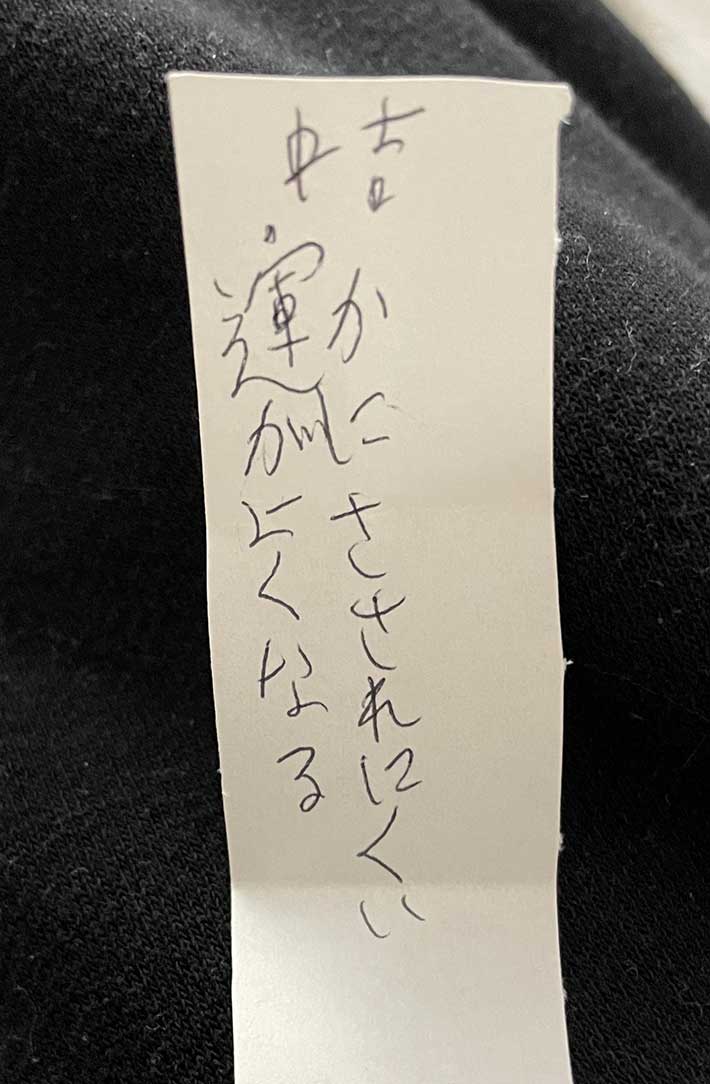 中吉
かにさされにくい
運がよくなる